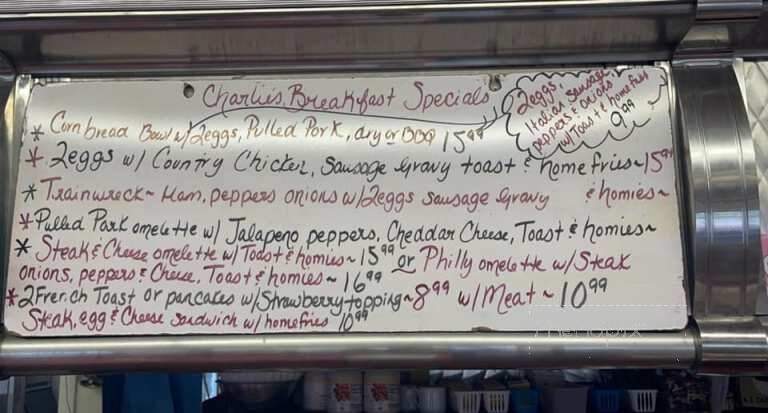 Charlie's Breakfast Specials
2eggs,
Italian Sausage
peppers & onions
w/Toast & homefries
9 99
* Cornbread Bowl w/2eggs, Pulled Pork, dry or BBQ 15 99
* 2eggs w/ Country Chicken, Sausage Gravy toast & homefries~15 99
* Trainwreck~ Ham, peppers onions w/2eggs sausage Gravy & homies~
* Pulled Pork omelette w/ Jalapeno peppers, Cheddar Cheese, Toast & homies~
* Steak & Cheese omelette w/Toast & homies~ 15 99 or Philly omelette w/Steak
onions, peppers & Cheese, Toast & homies~ 16 99
* 2French Toast or pancakes w/Strawberry topping~ 8 99 w/Meat~ 10 99
Steak, egg & Cheese Sandwich w/ homefries 10 99